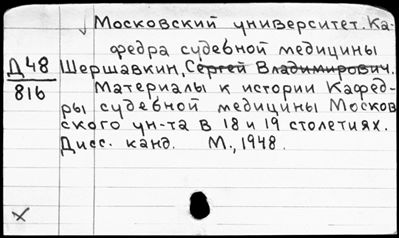 Московский университет. Ка-
федра судебной медицины
Д48
816
Шершавкин, Сергей Владимирович.
Материалы к истории Кафед-
ры судебной медицины Москов
ского ун-та в 18 и 19 столетиях.
Дисс. канд. М., 1948.